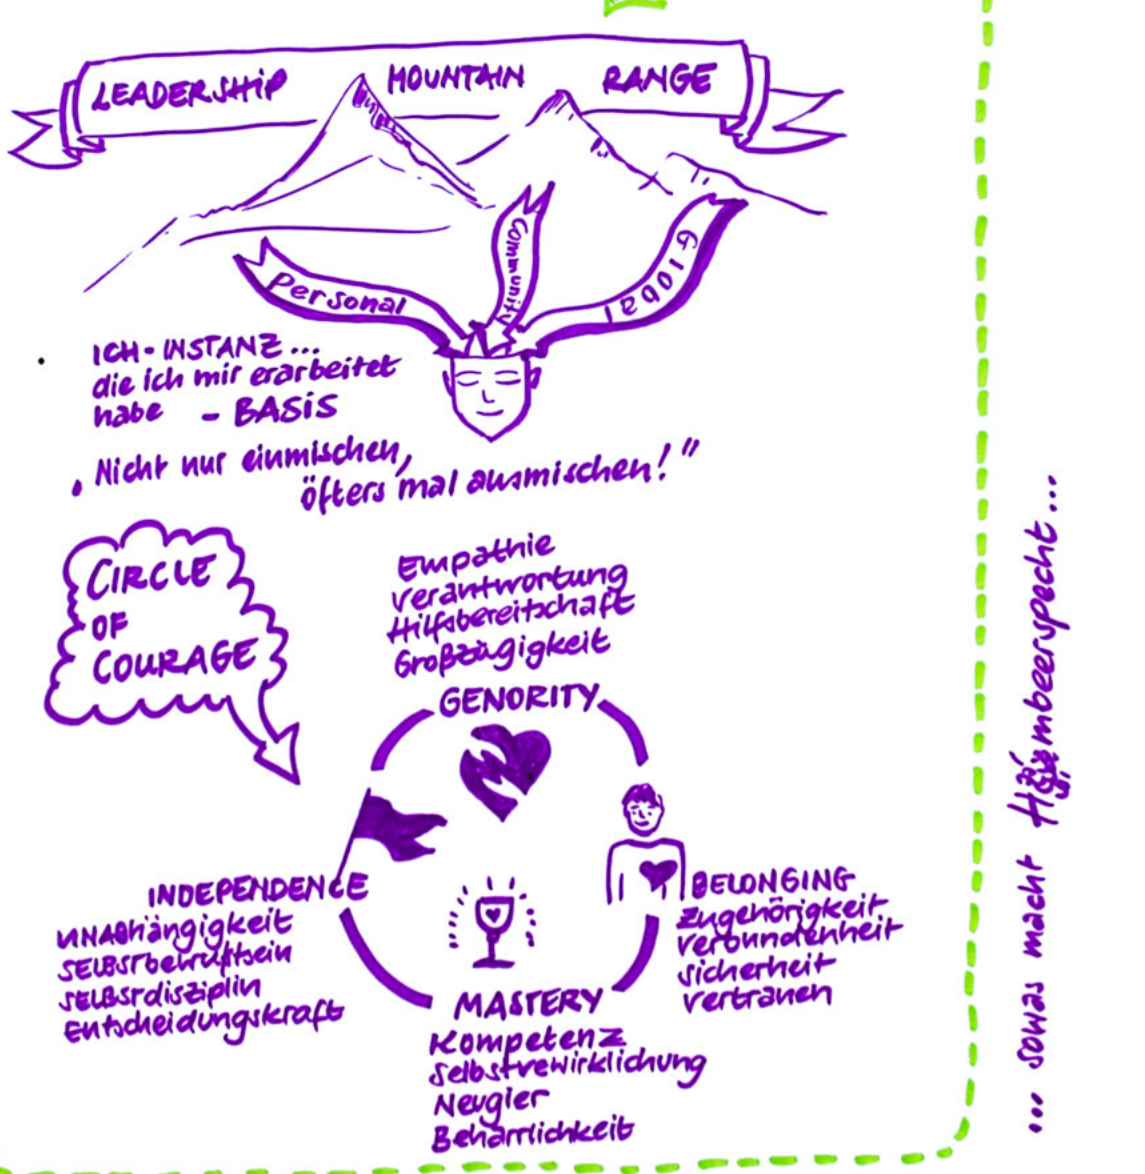 LEADERSHIP MOUNTAIN RANGE
Personal
Community
Global
ICH-INSTANZ...
die ich mir erarbeitet
habe - BASIS
"Nicht nur einmischen,
öfters mal ausmischen!"
CIRCLE
OF
COURAGE
Empathie
Verantwortung
Hilfsbereitschaft
Großzügigkeit
GENORITY
INDEPENDENCE
UNABhängigkeit
SELBSTbewußtsein
SELBSTdisziplin
Entscheidungskraft
BELONGING
Zugehörigkeit
Verbundenheit
Sicherheit
Vertrauen
MASTERY
Kompetenz
Selbstvewirklichung
Neugier
Beharrlichkeit
... sowas macht